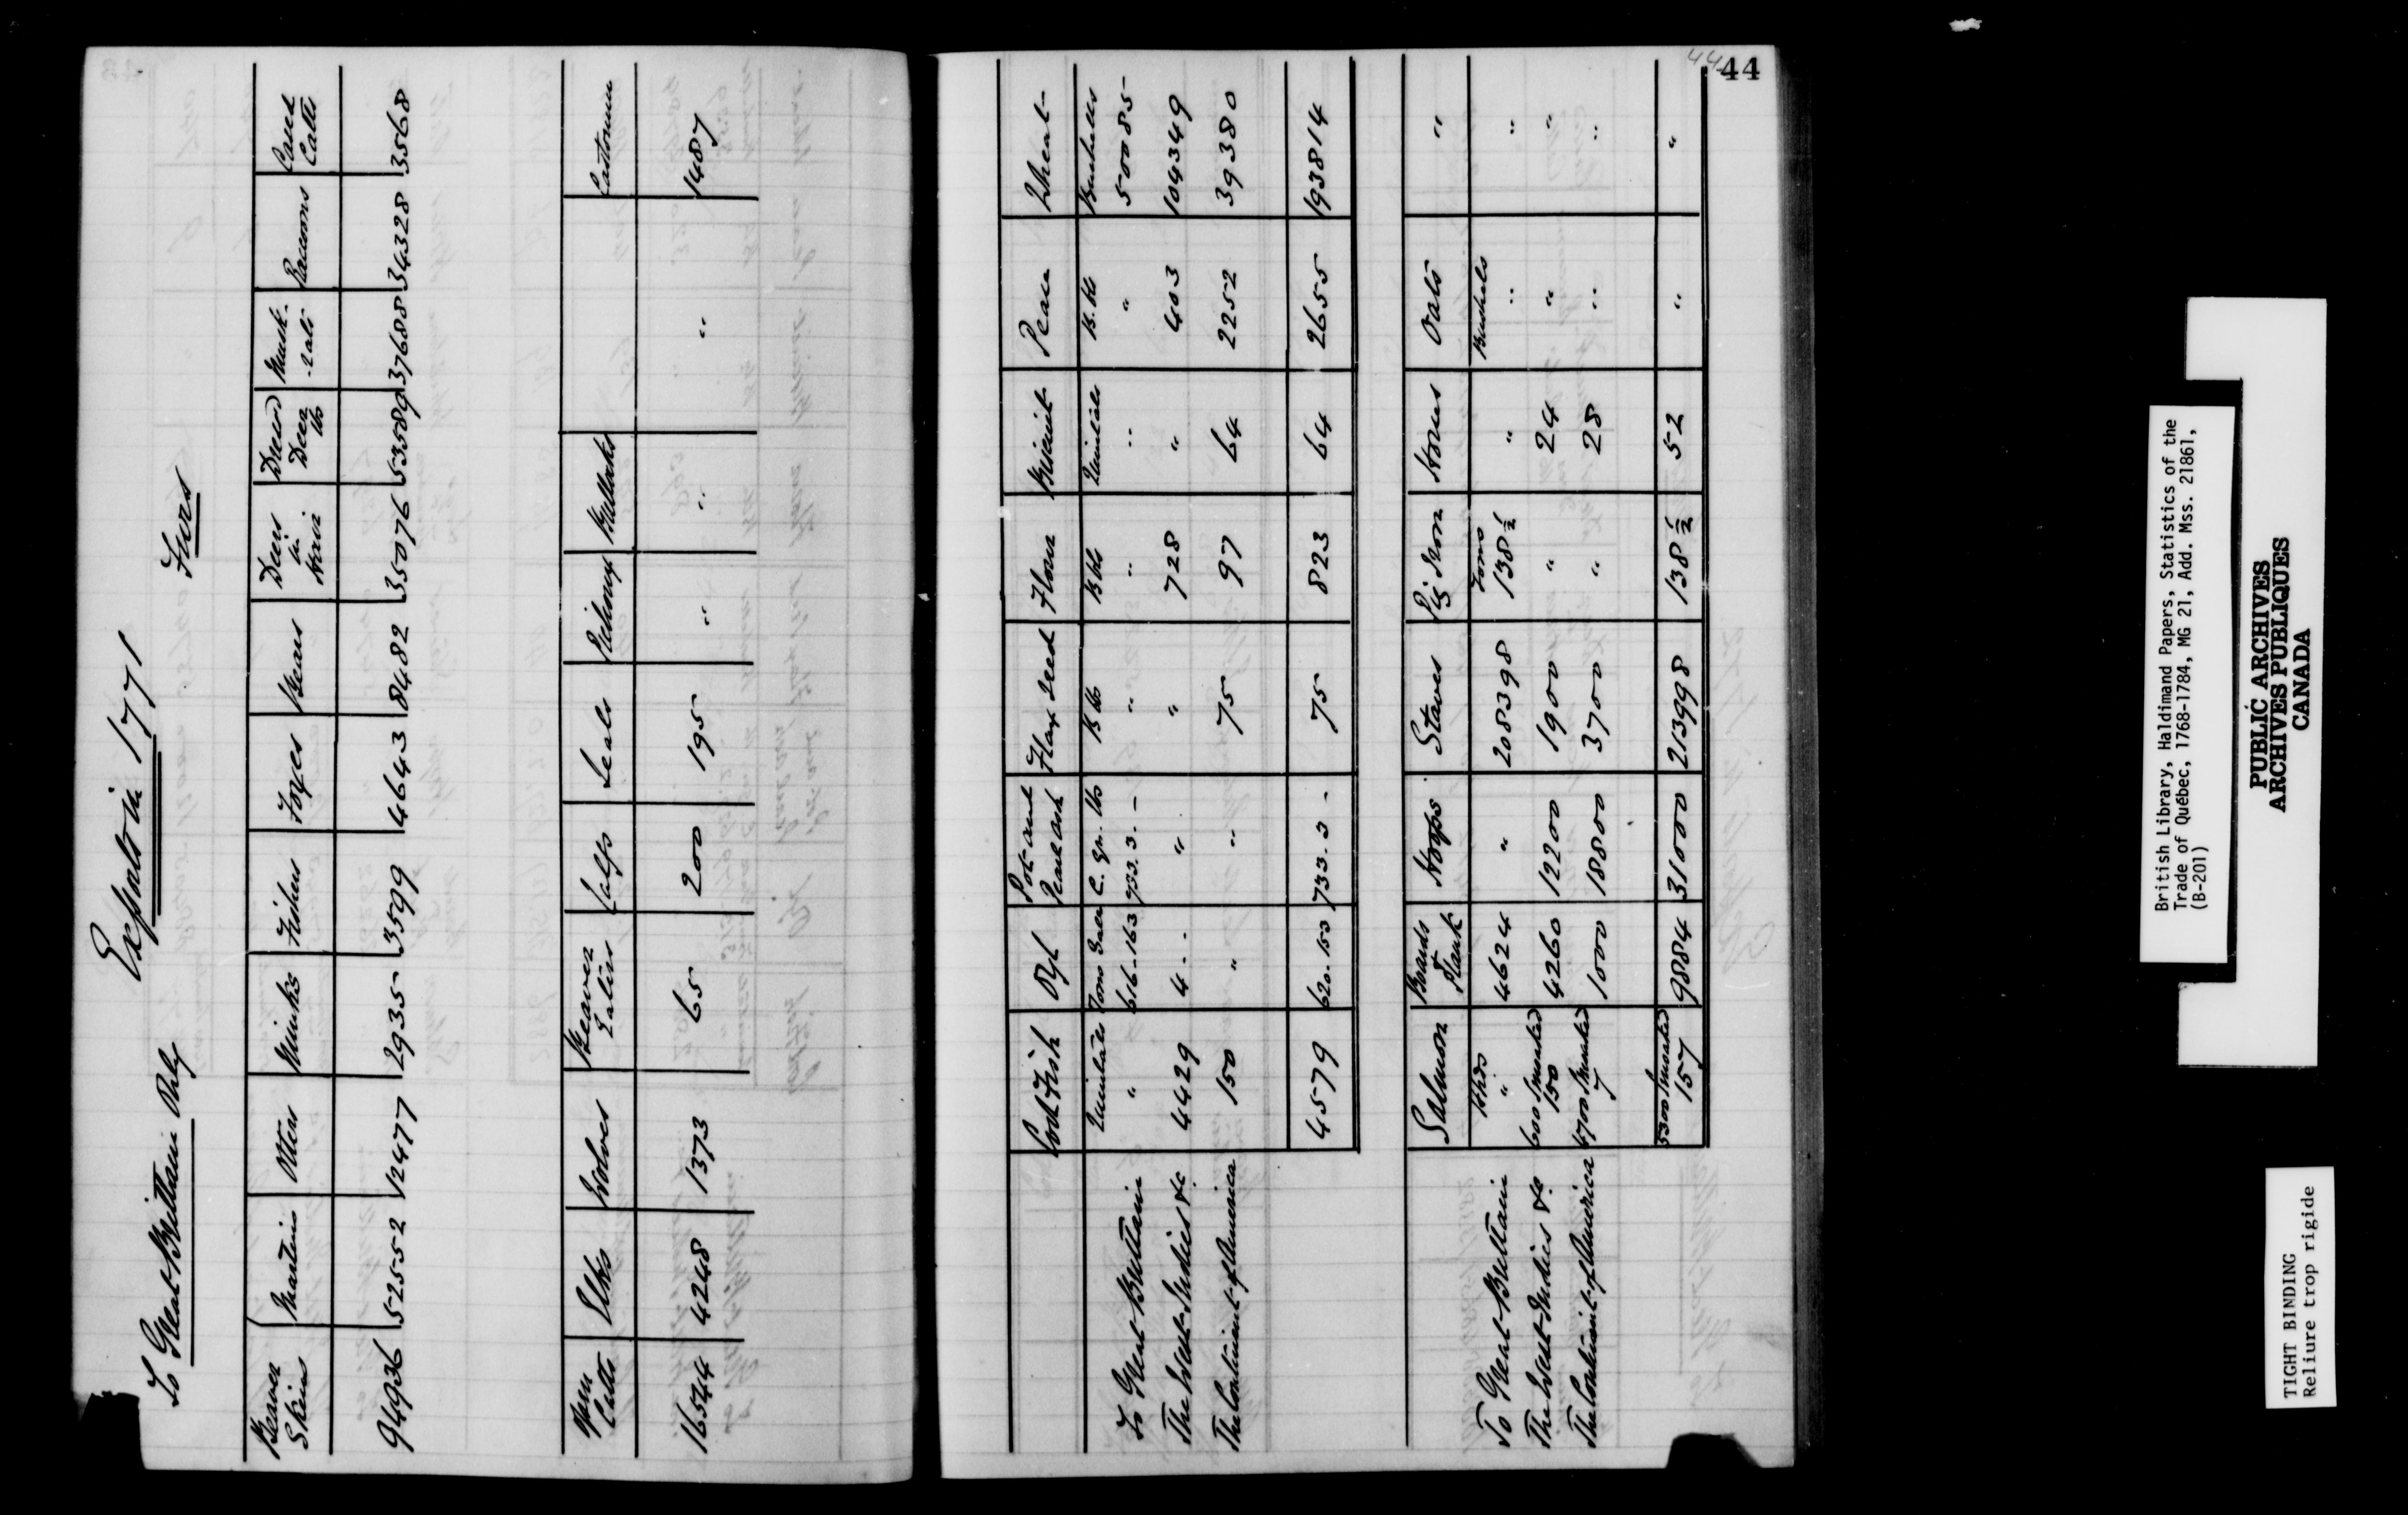 Exports in 1771
To Great Brittain Only Furrs
Beaver Skins | Martins | Otters | Minks | Fishers | Foxes | Bears | Deers in Hair | Deers Deer lb | Musk-rats | Raccoons | Cased Catts
94936 | 52552 | 12477 | 2935 | 3599 | 4643 | 8482 | 35076 | 53589 | 37688 | 34328 | 3568
Open Catts | Elks | Wolves | Beaver | Calfs | Seals | | | | Castorum
16544 | 4248 | 1373 | 65 | 200 | 195 | " | " | " | 1487
44
44
Cod Fish | Oyl | Pot and Pearl ash | Flax Seed | Flour | Biscuit | Pease | Wheat
Quintals | Tons Galls | C. qr. lbs | B bls | B bls | Quintals | B. bls | Bushells
To Great Brittain | " | 616-163 | 733.3.- | " | " | " | " | 50085
The West Indies &c | 4429 | 4 - - | " | " | 728 | " | 403 | 104349
The Continent of America | 150 | " | " | 75 | 97 | 64 | 2252 | 39380
4579 | 620-153 | 733-3- | 75 | 823 | 64 | 2655 | 193814
Salmon | Boards & Plank | Hoops | Staves | Pig Iron | Horses | Oats | "
Hhds | Tons | Bushels
To Great Brittain | " | 4624 | " | 208398 | 138½ | " | " | "
The West Indies &c | 600 Smoaked 150 | 4260 | 12200 | 1900 | " | 24 | " | "
The Continent of America | 4700 Smoaked 7 | 1000 | 18800 | 3700 | " | 28 | " | "
5300 Smoaked 157 | 9884 | 31000 | 213998 | 138½ | 52 | " | "
British Library, Haldimand Papers, Statistics of the
Trade of Québec, 1768-1784, MG 21, Add. Mss. 21861,
(B-201)
PUBLIC ARCHIVES
ARCHIVES PUBLIQUES
CANADA
TIGHT BINDING
Reliure trop rigide